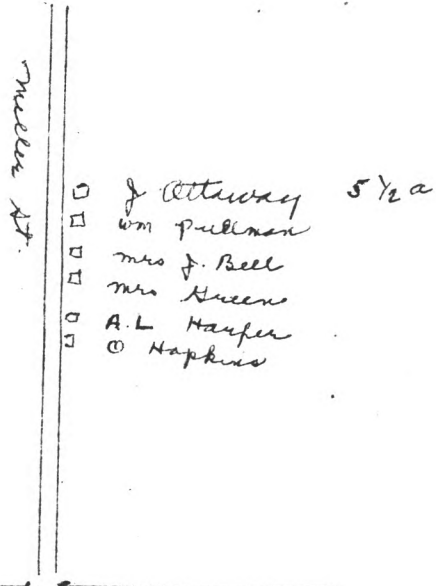 Miller St.
J Ottaway 5 1/2 a
wm Pullman
mrs J. Bell
mrs Green
A.L Harper
O Hopkins